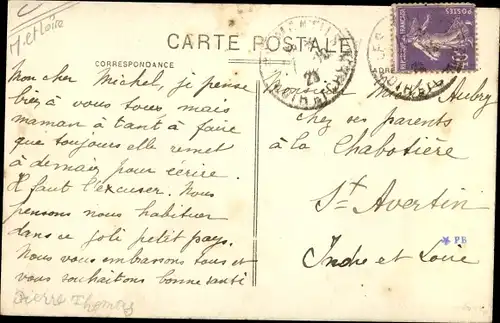 M. et Loire
CARTE POSTALE
CORRESPONDANCE
Mon cher Michel, je pense
bien à vous tous mais
maman à tant à faire
que toujours elle remet
à demain pour écrire.
Il faut l'excuser. Nous
pensons nous habituer
dans ce joli petit pays.
Nous vous embrassons tous et
vous souhaitons bonne santé
Pierre Thomas
POSTES
Monsieur Aubry
chez ses parents
à la Chabotière
St Avertin
Indre et Loire
PB